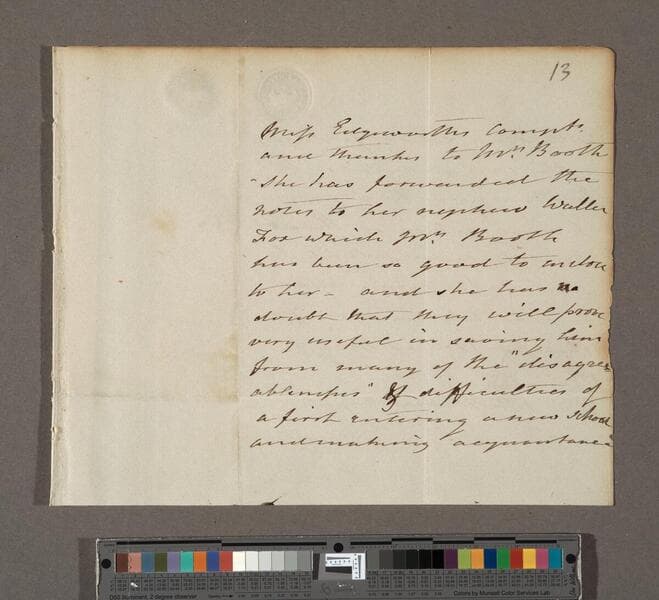 13
Miss Edgeworths Compts.
and thanks to Mrs. Booth
She has forwarded the
notes to her nephew Waller
For which Mrs. Booth
has been so good to enclose
to her - and she has no
doubt that they will prove
very useful in saving him
from many of the "disagree=
ablenesses" & difficulties of
a first entering a new school
and making acquaintance